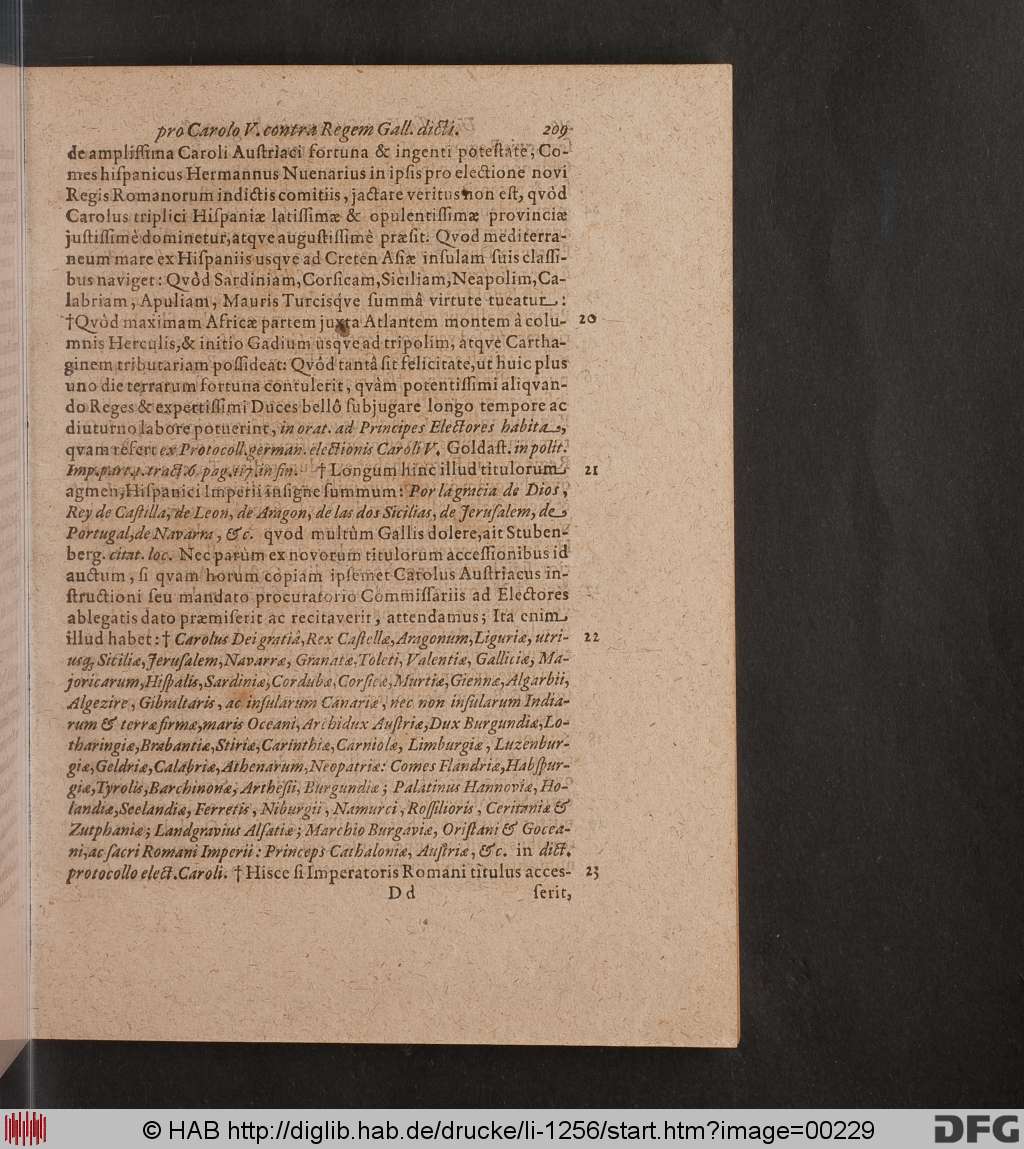 pro Carolo V. contra Regem Gall. dicti. 209
de amplissima Caroli Austriaci fortuna & ingenti potestate, Co-
mes hispanicus Hermannus Nuenarius in ipsis pro electione novi
Regis Romanorum indictis comitiis, jactare veritus non est, qvòd
Carolus triplici Hispaniæ latissimæ & opulentissimæ provinciæ
justissimè dominetur, atqve augustissimè præsit: Qvod mediterra-
neum mare ex Hispaniis usqve ad Creten Asiæ insulam suis classi-
bus naviget: Qvòd Sardiniam, Corsicam, Siciliam, Neapolim, Ca-
labriam, Apuliam, Mauris Turcisqve summâ virtute tueatur:
†Qvòd maximam Africæ partem juxta Atlantem montem à colu- 20
mnis Herculis, & initio Gadium usqve ad tripolim, atqve Cartha-
ginem tributariam possideat: Qvòd tantâ sit felicitate, ut huic plus
uno die terrarum fortuna contulerit, qvàm potentissimi aliqvan-
do Reges & expertissimi Duces bellô subjugare longo tempore ac
diuturno labore potuerint, in orat. ad Principes Electores habita,
qvam refert ex Protocoll. german. electionis Caroli V. Goldast. in polit.
Imp. part. 4. tract. 6. pag. 117. in fin. † Longum hinc illud titulorum 21
agmen, Hispanici Imperii insigne summum: Por la gracia de Dios,
Rey de Castilla, de Leon, de Aragon, de las dos Sicilias, de Jerusalem, de
Portugal, de Navarra, &c. qvod multùm Gallis dolere, ait Stuben-
berg. citat. loc. Nec parùm ex novorum titulorum accessionibus id
auctum, si qvam horum copiam ipsemet Carolus Austriacus in-
structioni seu mandato procuratorio Commissariis ad Electores
ablegatis dato præmiserit ac recitaverit, attendamus; Ita enim
illud habet: † Carolus Dei gratiâ, Rex Castellæ, Aragonum, Liguriæ, utri- 22
usq; Siciliæ, Jerusalem, Navarræ, Granatæ, Toleti, Valentiæ, Galliciæ, Ma-
joricarum, Hispalis, Sardiniæ, Cordubæ, Corsicæ, Murtiæ, Giennæ, Algarbii,
Algezire, Gibraltaris, ac insularum Canariæ, nec non insularum India-
rum & terræ firmæ, maris Oceani, Archidux Austriæ, Dux Burgundiæ, Lo-
tharingiæ, Brabantiæ, Stiriæ, Carinthiæ, Carniolæ, Limburgiæ, Luzenbur-
giæ, Geldriæ, Calabriæ, Athenarum, Neopatriæ: Comes Flandriæ, Habspur-
giæ, Tyrolis, Barchinonæ, Arthesii, Burgundiæ; Palatinus Hannoviæ, Ho-
landiæ, Seelandiæ, Ferretis, Niburgii, Namurci, Rossilioris, Ceritaniæ &
Zutphaniæ; Landgravius Alsatiæ; Marchio Burgaviæ, Oristani & Gocea-
ni, ac sacri Romani Imperii: Princeps Cathaloniæ, Austriæ, &c. in dict.
protocollo elect. Caroli. † Hisce si Imperatoris Romani titulus acces- 23
D d serit,
© HAB http://diglib.hab.de/drucke/li-1256/start.htm?image=00229
DFG